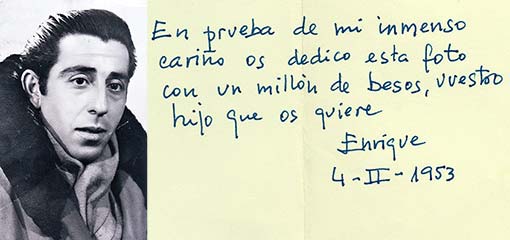 En prueba de mi inmenso
cariño os dedico esta foto
con un millón de besos, vuestro
hijo que os quiere
Enrique
4-II-1953